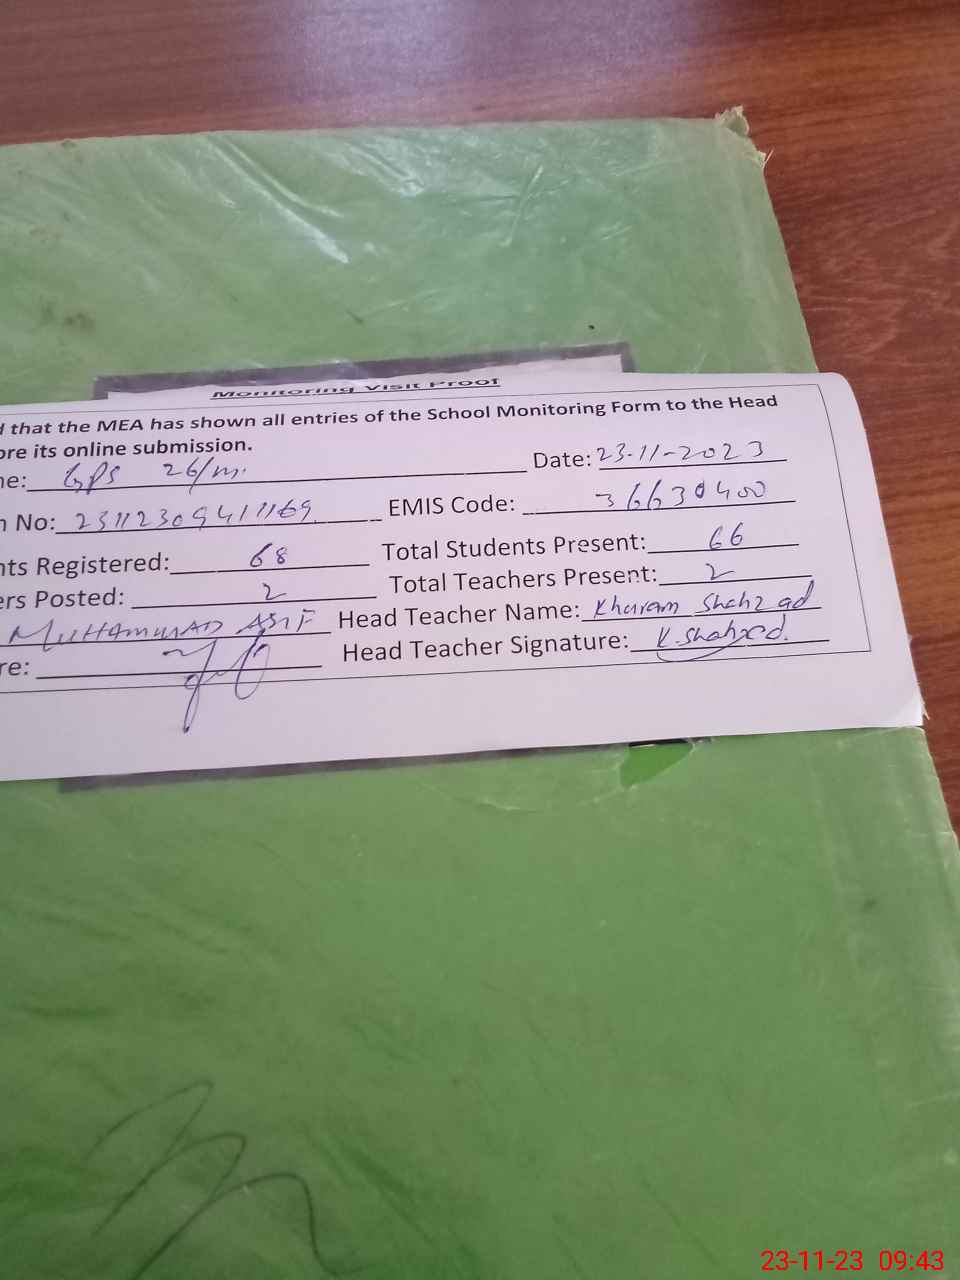 Monitoring Visit Proof
d that the MEA has shown all entries of the School Monitoring Form to the Head
ore its online submission.
ne: GPS 26/m. Date: 23-11-2023
n No: 23112309411169 EMIS Code: 36630400
nts Registered: 68 Total Students Present: 66
ers Posted: 2 Total Teachers Present: 2
MUHAMMAD ASIF Head Teacher Name: Khuram Shahzad
re: Head Teacher Signature: K.Shahzad.
23-11-23 09:43